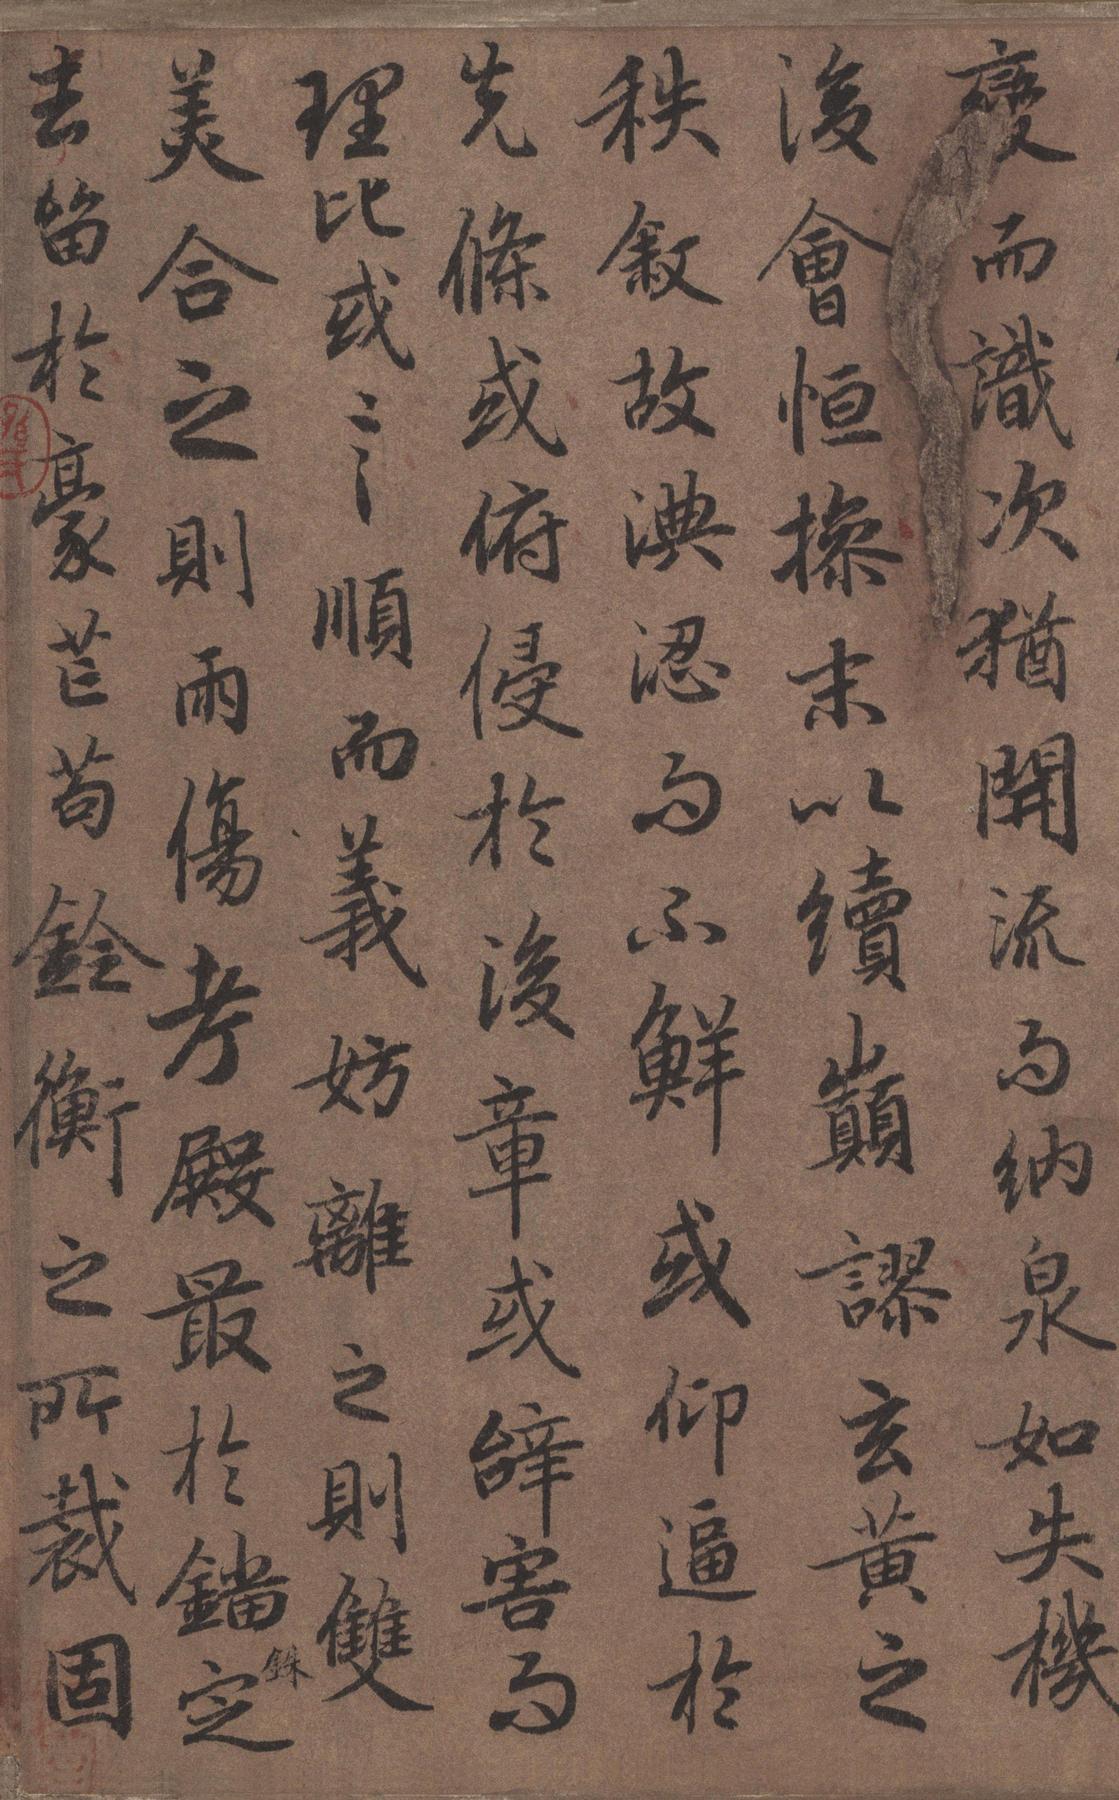 變而識次猶開流而納泉如失機
後會恒操末以續巔謬玄黃之
秩敘故淟涊而不鮮或仰逼於
先條或俯侵於後章或辭害而
理比或言順而義妨離之則雙
美合之則兩傷考殿最於錙定
銖
去留於豪芒苟銓衡之所裁固